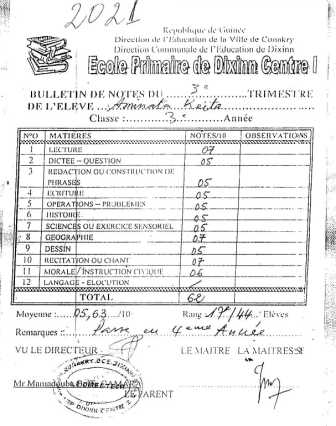 2021
Republique de Guinée
Direction de l'Education de la Ville de Conakry
Direction Communale de l'Education de Dixinn
Ecole Primaire de Dixinn Centre I
BULLETIN DE NOTES DU 3e TRIMESTRE
DE L'ELEVE Aminata Keita
Classe : 3e Année
N°O MATIERES NOTES/10 OBSERVATIONS
1 LECTURE 07
2 DICTEE – QUESTION 05
3 REDACTION OU CONSTRUCTION DE PHRASES 05
4 ECRITURE 05
5 OPERATIONS – PROBLEMES 05
6 HISTOIRE 05
7 SCIENCES OU EXERCICE SENSORIEL 05
8 GEOGRAPHIE 07
9 DESSIN 05
10 RECITATION OU CHANT 07
11 MORALE / INSTRUCTION CIVIQUE 06
12 LANGAGE - ELOCUTION
TOTAL 62
Moyenne : 05,63 /10 Rang 17e/44 Elèves
Remarques : Passe en 4eme Année
VU LE DIRECTEUR LE MAITRE LA MAITRESSE
Mr Mamadouba
LE PARENT